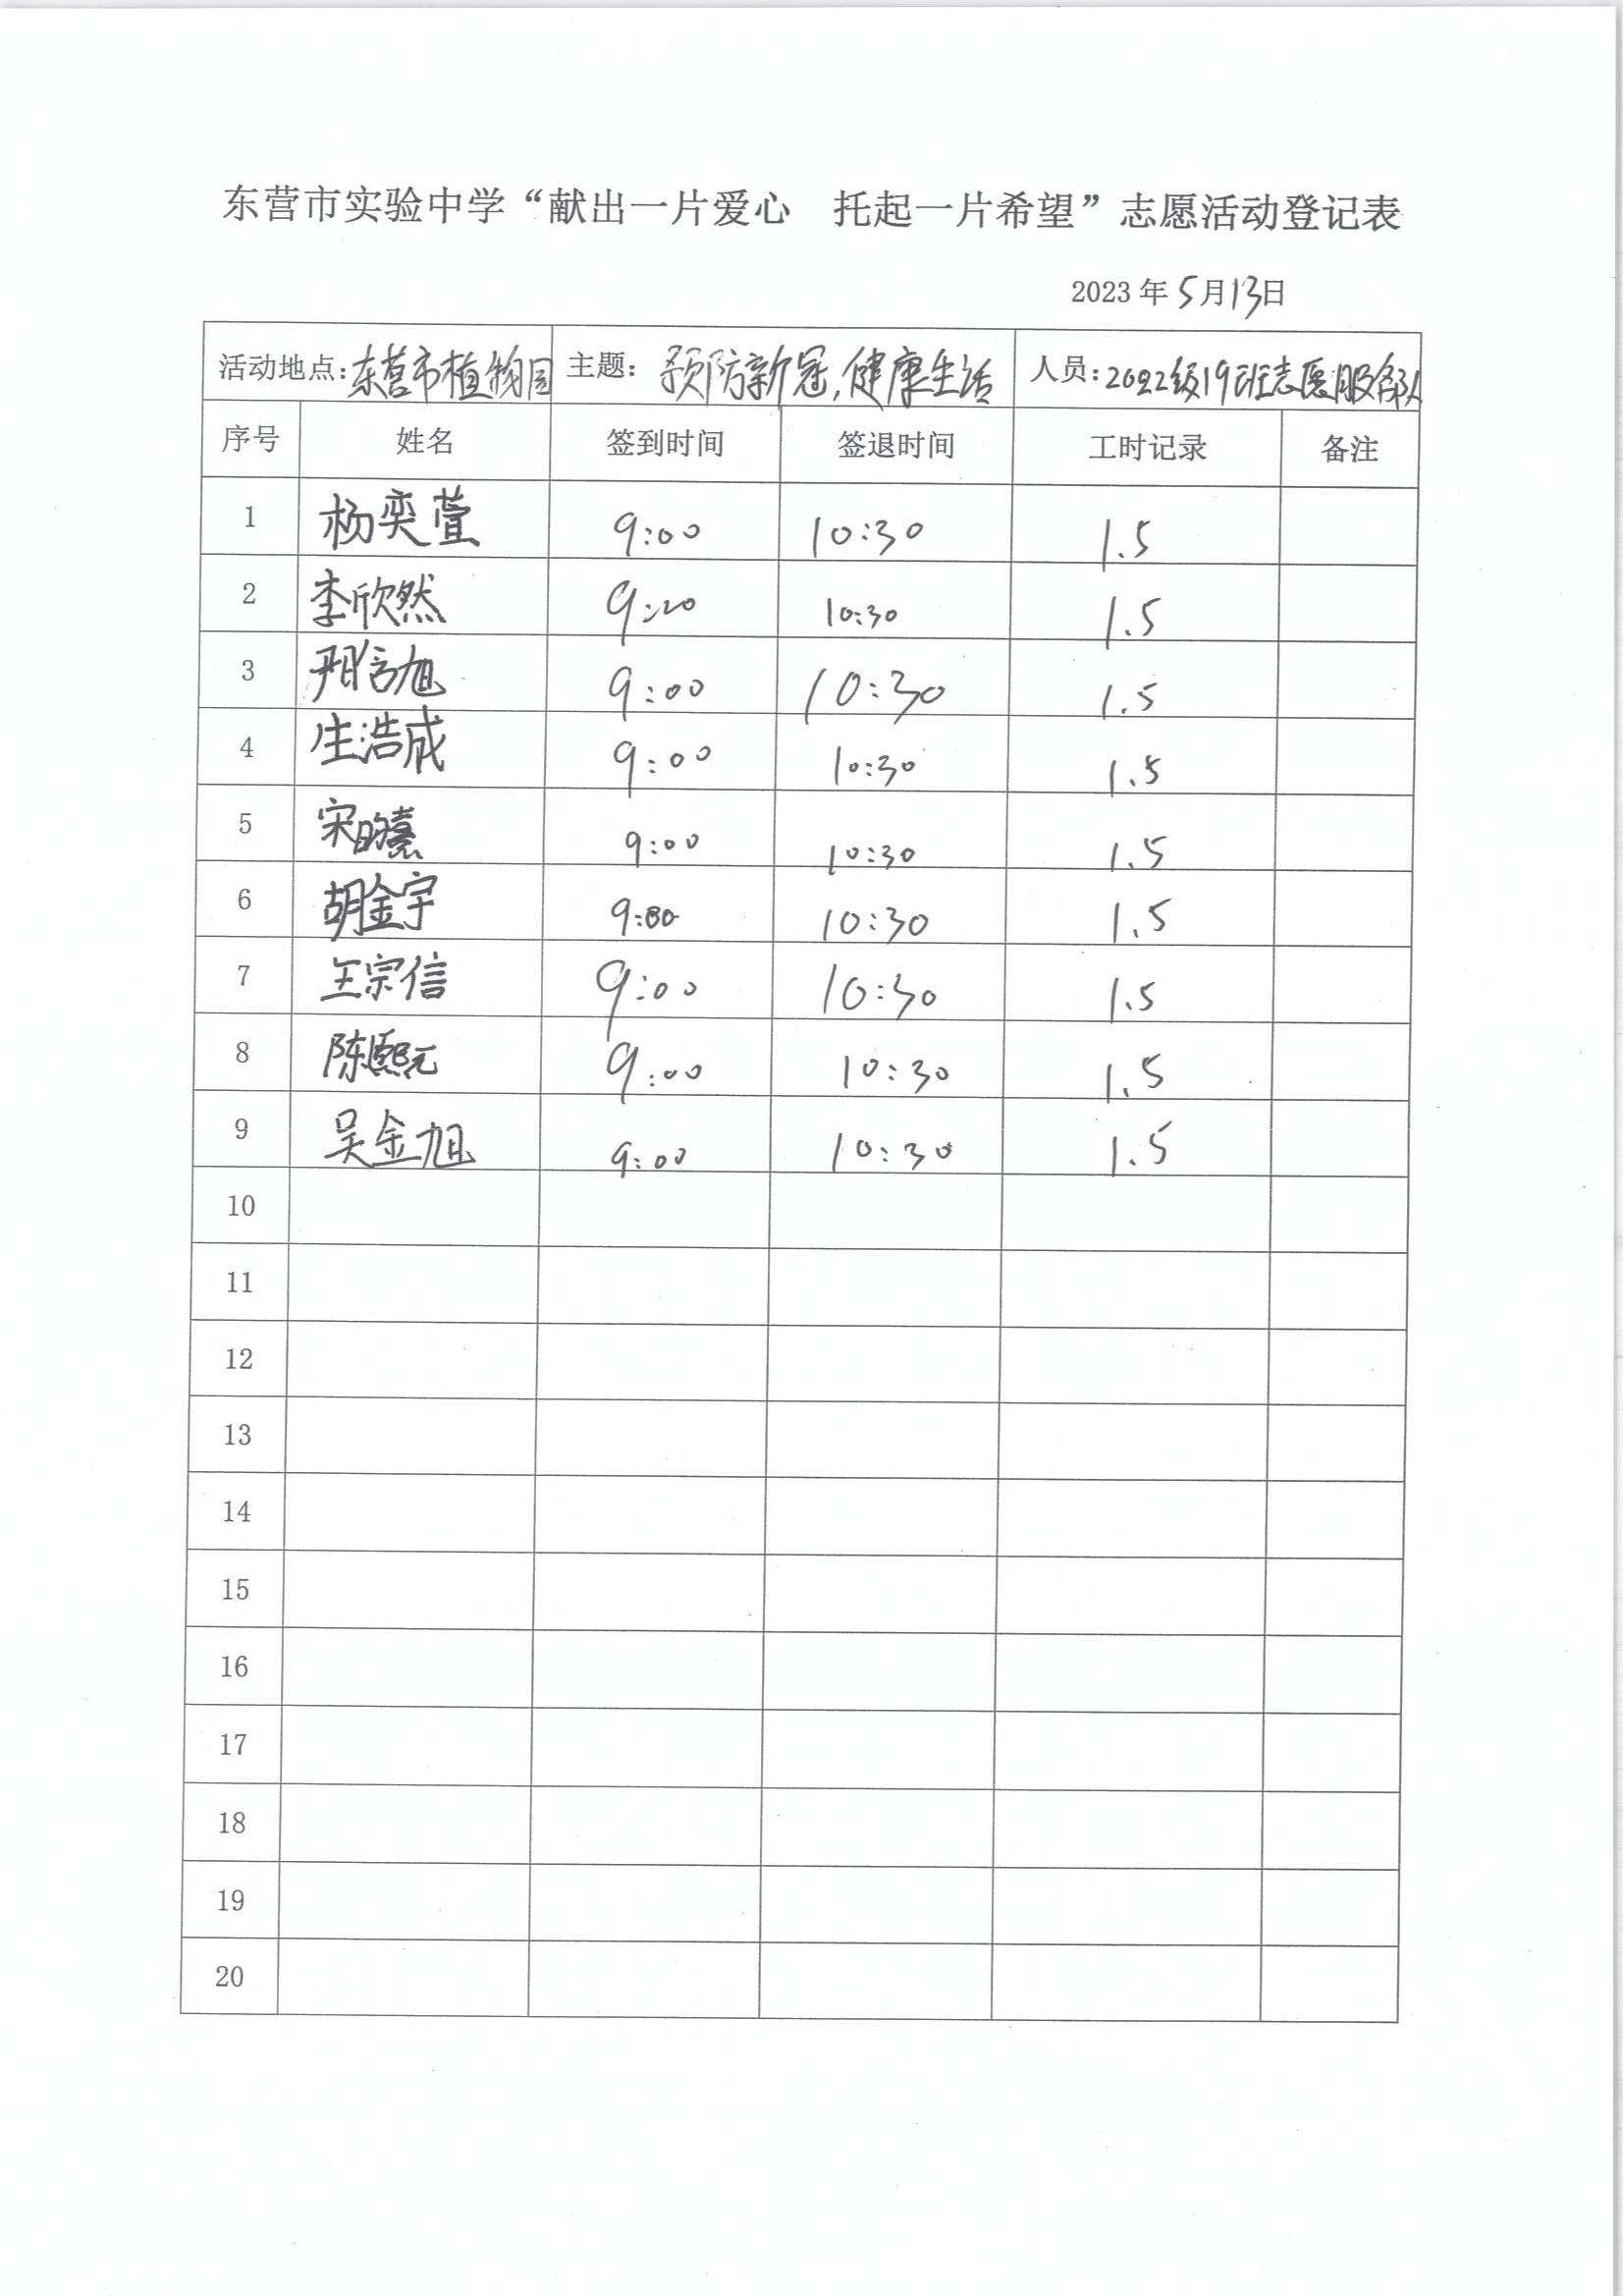 东营市实验中学“献出一片爱心 托起一片希望”志愿活动登记表
2023 年 5 月 13 日
活动地点：东营市植物园 主题： 预防新冠，健康生活 人员：2022级19班志愿服务队
序号 姓名 签到时间 签退时间 工时记录 备注
1 杨奕萱 9:00 10:30 1.5
2 李欣然 9:20 10:30 1.5
3 9:00 10:30 1.5
4 生浩成 9:00 10:30 1.5
5 宋昀熹 9:00 10:30 1.5
6 胡金宇 9:00 10:30 1.5
7 王宗信 9:00 10:30 1.5
8 陈熙元 9:00 10:30 1.5
9 吴金旭 9:00 10:30 1.5
10
11
12
13
14
15
16
17
18
19
20